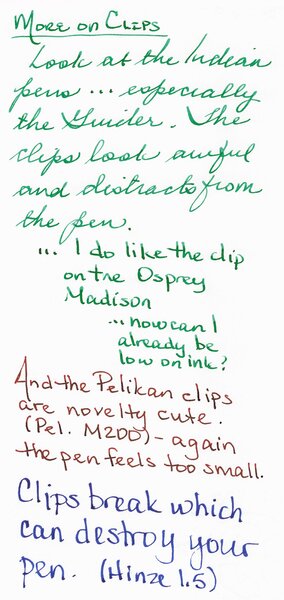 More on Clips
Look at the Indian
pens ... especially
the Guider. The
clips look awful
and distracts from
the pen.
... I do like the clip
on the Osprey
Madison
... how can I
already be
low on ink?
And the Pelikan clips
are novelty cute.
(Pel. M200) - again
the pen feels too small.
Clips break which
can destroy your
pen. (Hinze 1.5)